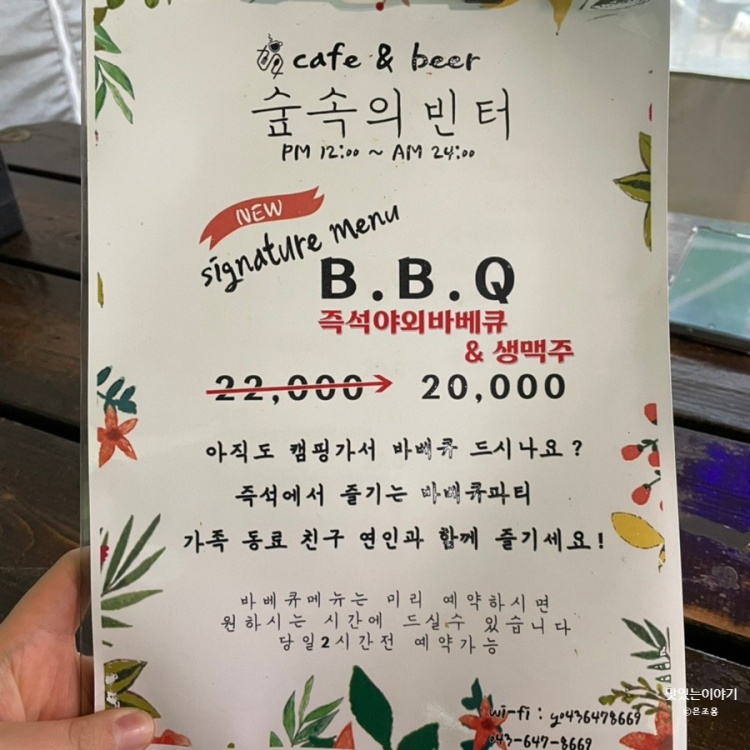 cafe & beer
숲속의 빈터
PM 12:00 ~ AM 24:00
NEW
signature menu
B.B.Q
즉석야외바베큐
& 생맥주
22,000 → 20,000
아직도 캠핑가서 바베큐 드시나요?
즉석에서 즐기는 바베큐파티
가족 동료 친구 연인과 함께 즐기세요!
바베큐메뉴는 미리 예약하시면
원하시는 시간에 드실수 있습니다
당일2시간전 예약가능
맛있는이야기
©은조옴
wi-fi : yo436478669
043-647-8669